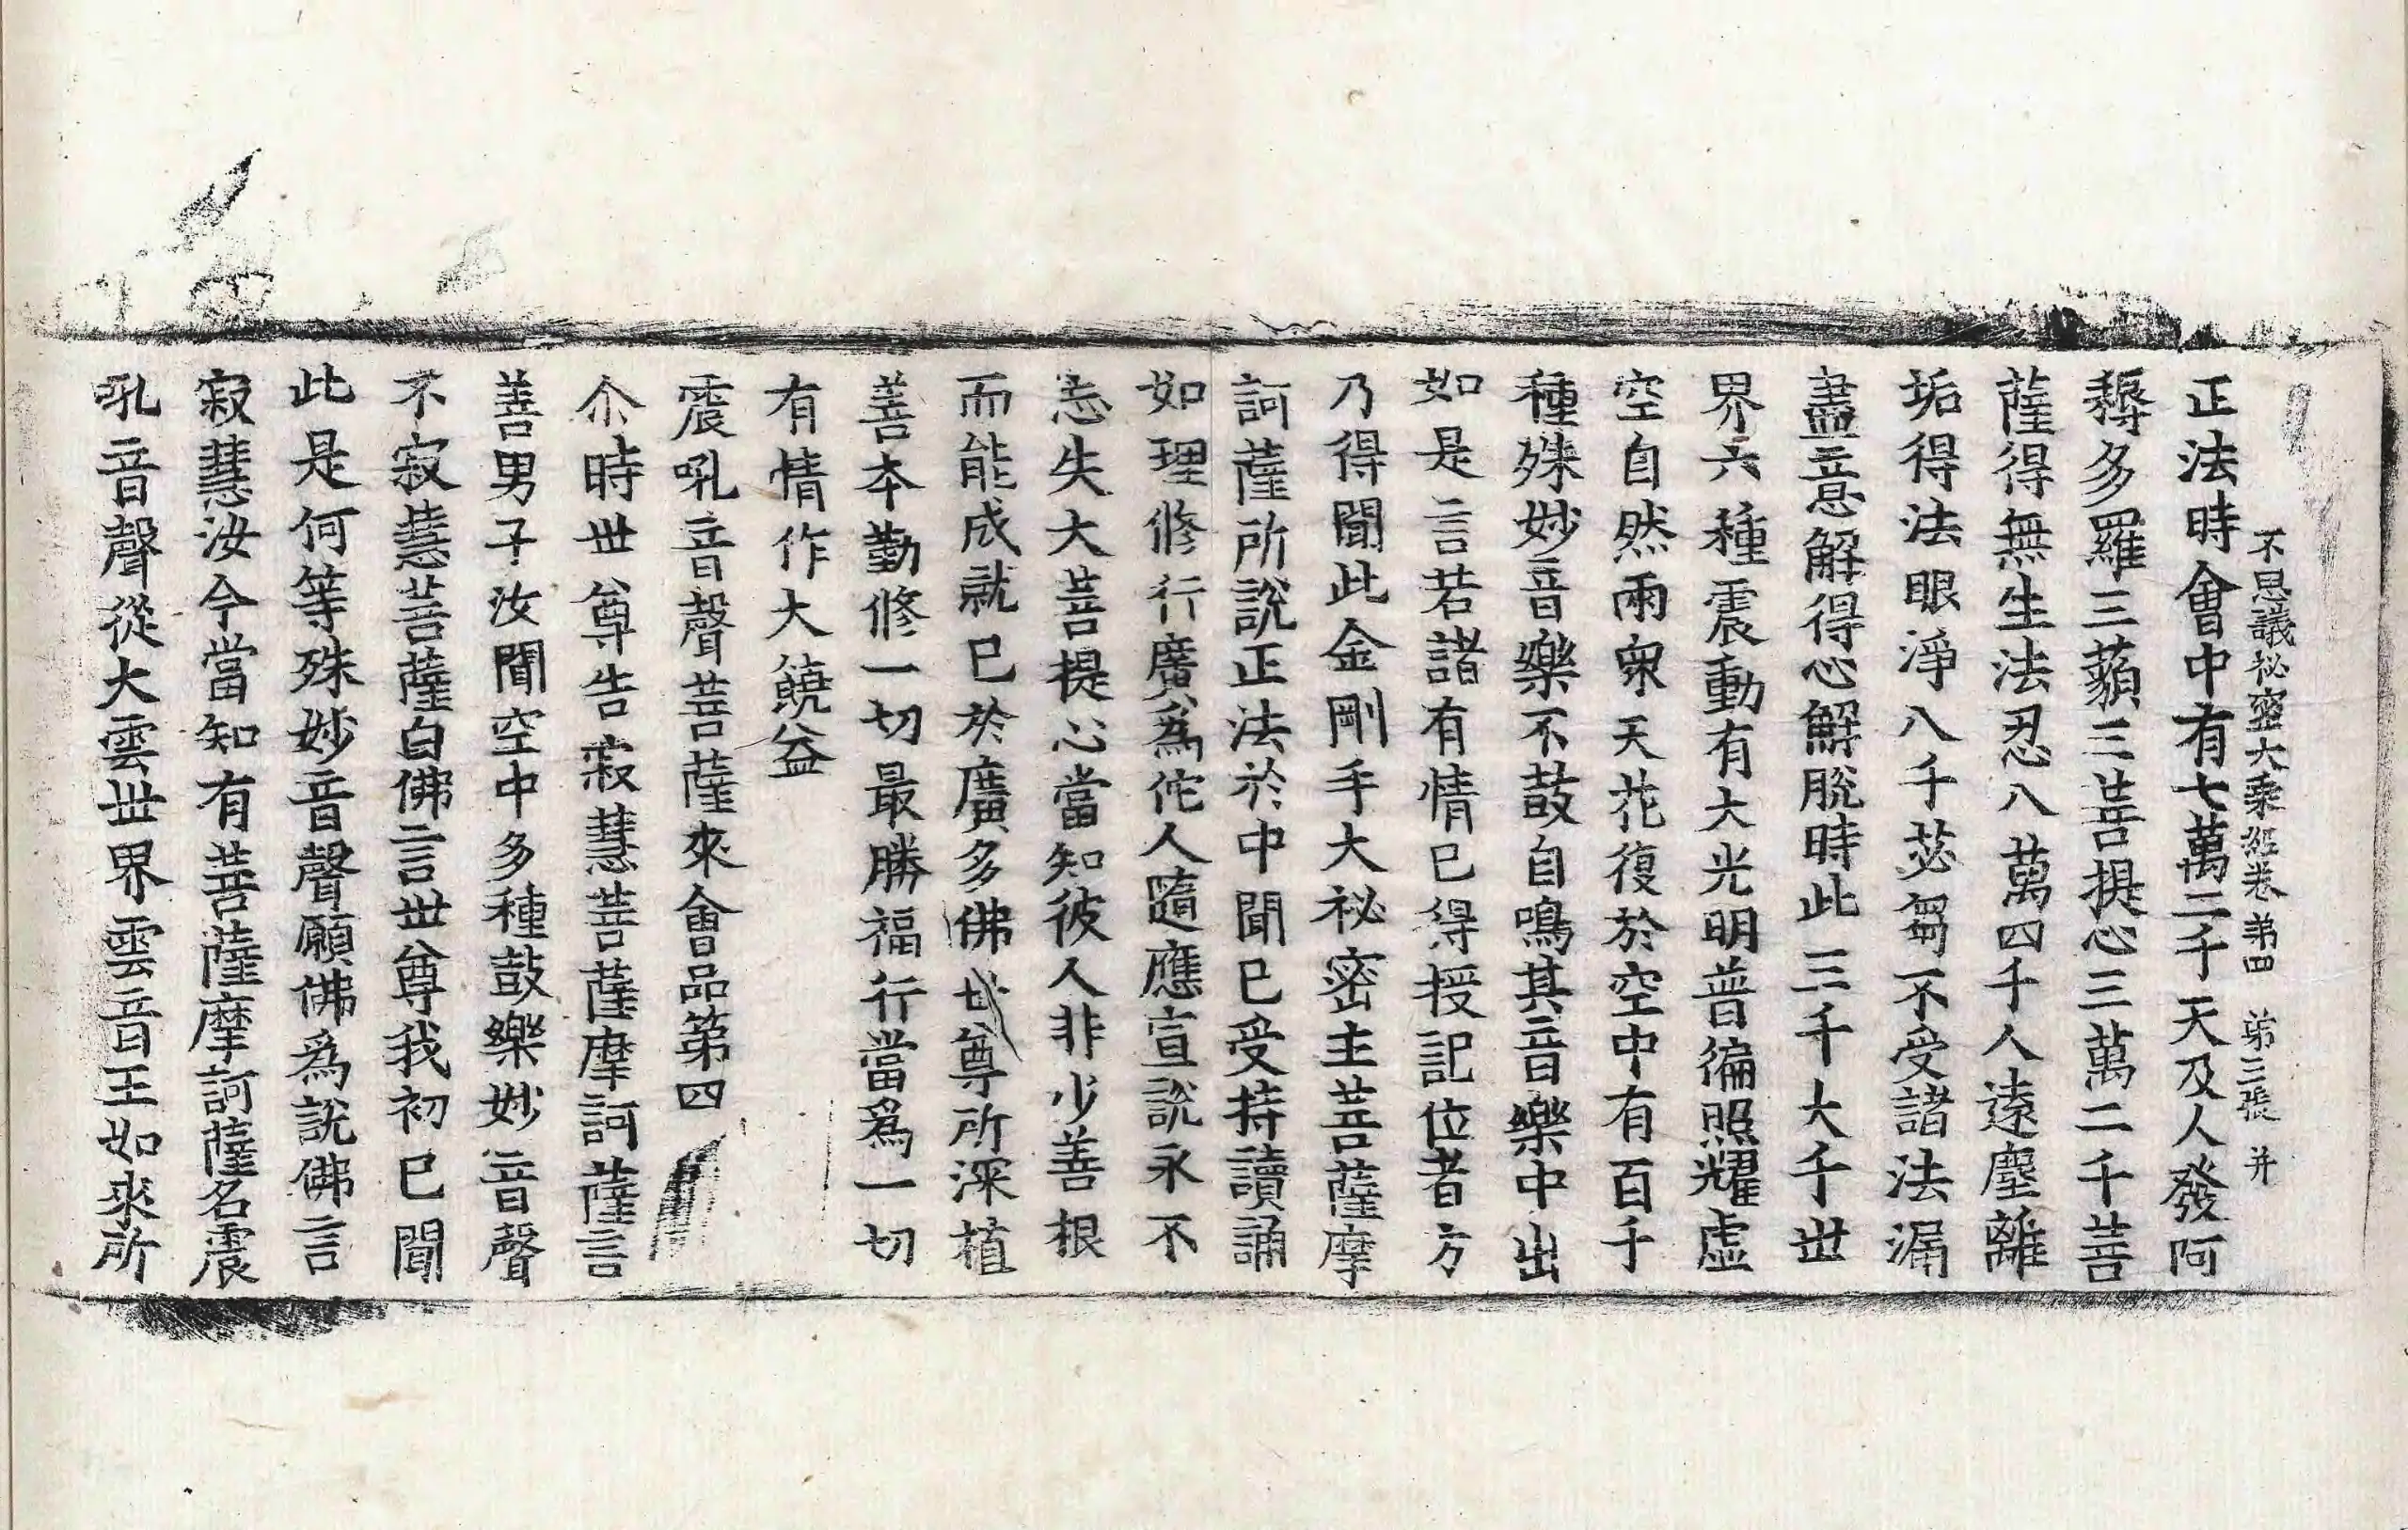 不思議祕密大乘經卷第四　第三張　并
正法時會中有七萬二千天及人發阿
耨多羅三藐三菩提心三萬二千菩
薩得無生法忍八萬四千人遠塵離
垢得法眼淨八千苾芻不受諸法漏
盡意解得心解脫時此三千大千世
界六種震動有大光明普徧照耀虛
空自然雨衆天花復於空中有百千
種殊妙音樂不鼓自鳴其音樂中出
如是言若諸有情已得授記位者方
乃得聞此金剛手大祕密主菩薩摩
訶薩所說正法於中聞已受持讀誦
如理修行廣爲佗人隨應宣說永不
忘失大菩提心當知彼人非少善根
而能成就已於廣多佛世尊所深植
善本勤修一切最勝福行當爲一切
有情作大饒益
震吼音聲菩薩來會品第四
尒時世尊告寂慧菩薩摩訶薩言
善男子汝聞空中多種鼓樂妙音聲
不寂慧菩薩白佛言世尊我初已聞
此是何等殊妙音聲願佛爲說佛言
寂慧汝今當知有菩薩摩訶薩名震
吼音聲從大雲世界雲音王如來所